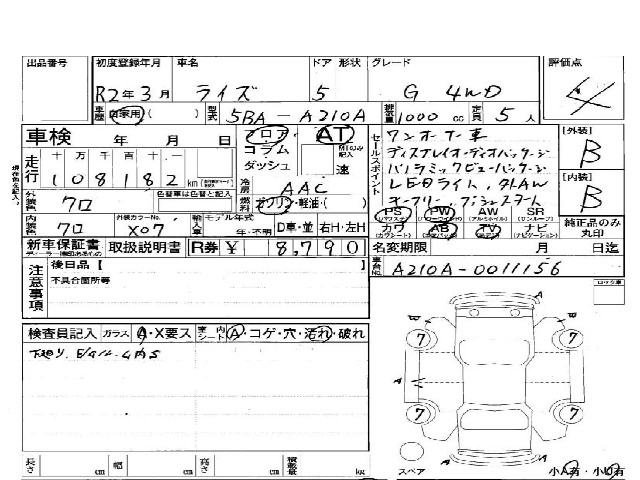 出品番号 初度登録年月 車名 ドア 形状 グレード 評価点
R2年3月 ライズ 5 G 4WD 4
車歴 自家用( ) 型式 5BA-A210A 排気量 1000 cc 定員 5 人
車検 年 月 日 フロア AT セールスポイント ワンオーナー車 [外装]
走行 十万千百十一 コラム MTのみ記入 ディスプレイオーディオパッケージ B
108182 km ダッシュ 速 パノラミックビューパッケージ
冷房 AAC LEDライト、外AW [内装]
外装色 クロ 色替車は色替と記入 燃料 ガソリン・軽油・( ) オープナー、プッシュスタート B
内装色 クロ 外装カラーNo. X07 輸入車 モデル年式 年・不明 D車・並 右H・左H PS PW AW SR 純正品のみ丸印
カワ AB TV ナビ
新車保証書 取扱説明書 R券 ¥ 8,790 名変期限 月 日迄
注意事項 後日品 [ 車台No. A210A-0011156
不具合箇所等 ロック車
検査員記入 ガラス A・X要ス 室内 シート A・コゲ・穴・汚れ・破れ A
7 7
A A
7 7
長さ cm 幅 cm 高さ cm 積載量 kg スペア 小A有・小U有